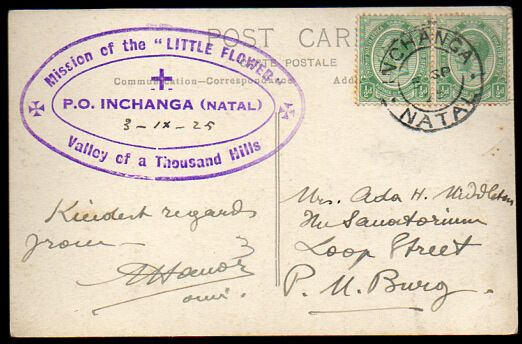 POST CARD
CARTE POSTALE
Communication—Correspondence
Mission of the "LITTLE FLOWER"
P.O. INCHANGA (NATAL)
3-IX-25
Valley of a Thousand Hills
INCHANGA
SP
NATAL
½d ½d ½d ½d
Kindest regards
from —
Mrs. Ada H. Middleton
The Sanatorium
Loop Street
P. M. Burg.